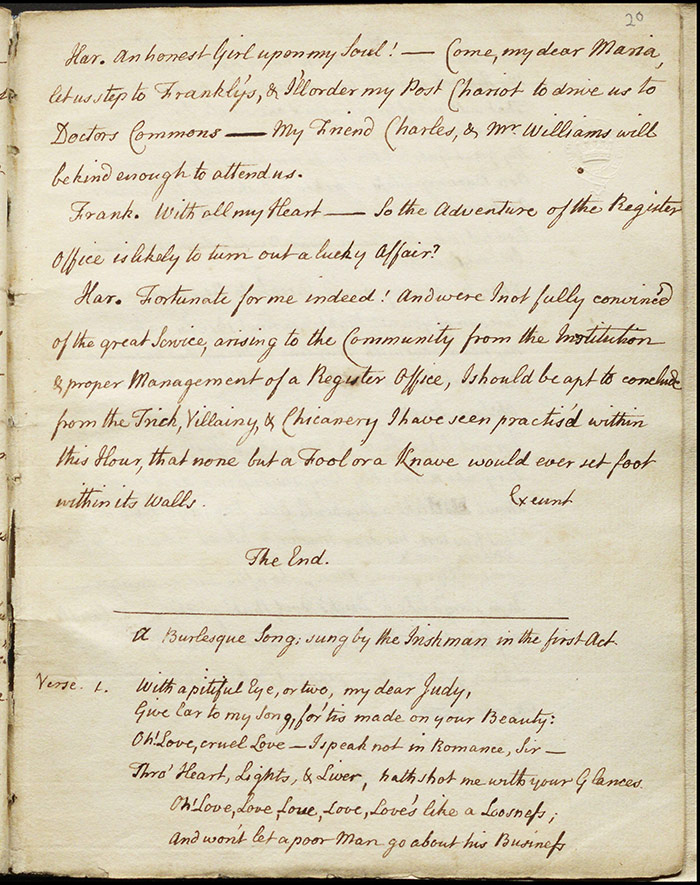 20
Har. An honest Girl upon my Soul! — Come, my dear Maria,
let us step to Frankly's, & I'll order my Post Chariot to drive us to
Doctors Commons — My Friend Charles, & Mr Williams will
be kind enough to attend us.
Frank. With all my Heart — So the Adventure of the Register
Office is likely to turn out a lucky Affair?
Har. Fortunate for me indeed! And were I not fully convinc'd
of the great Service, arising to the Community from the Institution
& proper Management of a Register Office, I should be apt to conclude
from the Trick, Villainy, & Chicanery I have seen practis'd within
this Hour, that none but a Fool or a Knave would ever set foot
within its Walls. Exeunt
The End.
A Burlesque Song; sung by the Irishman in the first Act
Verse. 1. With a pitiful Eye, or two, my dear Judy,
Give Ear to my Song, for 'tis made on your Beauty:
Oh! Love, cruel Love — I speak not in Romance, Sir —
Thro' Heart, Lights, & Liver, hath shot me with your Glances.
Oh! Love, Love, Love, Love, Love's like a Loosneſs;
And won't let a poor Man go about his Busineſs